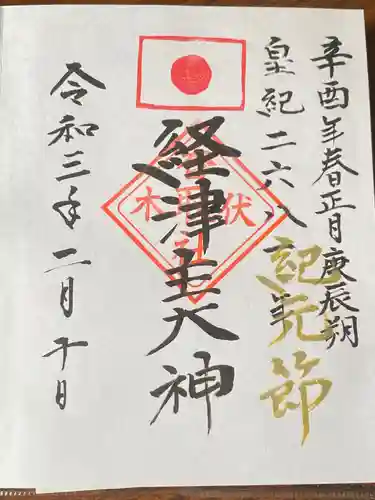 辛酉年春正月庚辰朔
皇紀二六八一年
紀元節
経津主大神
伏木
社
令和三年二月十日